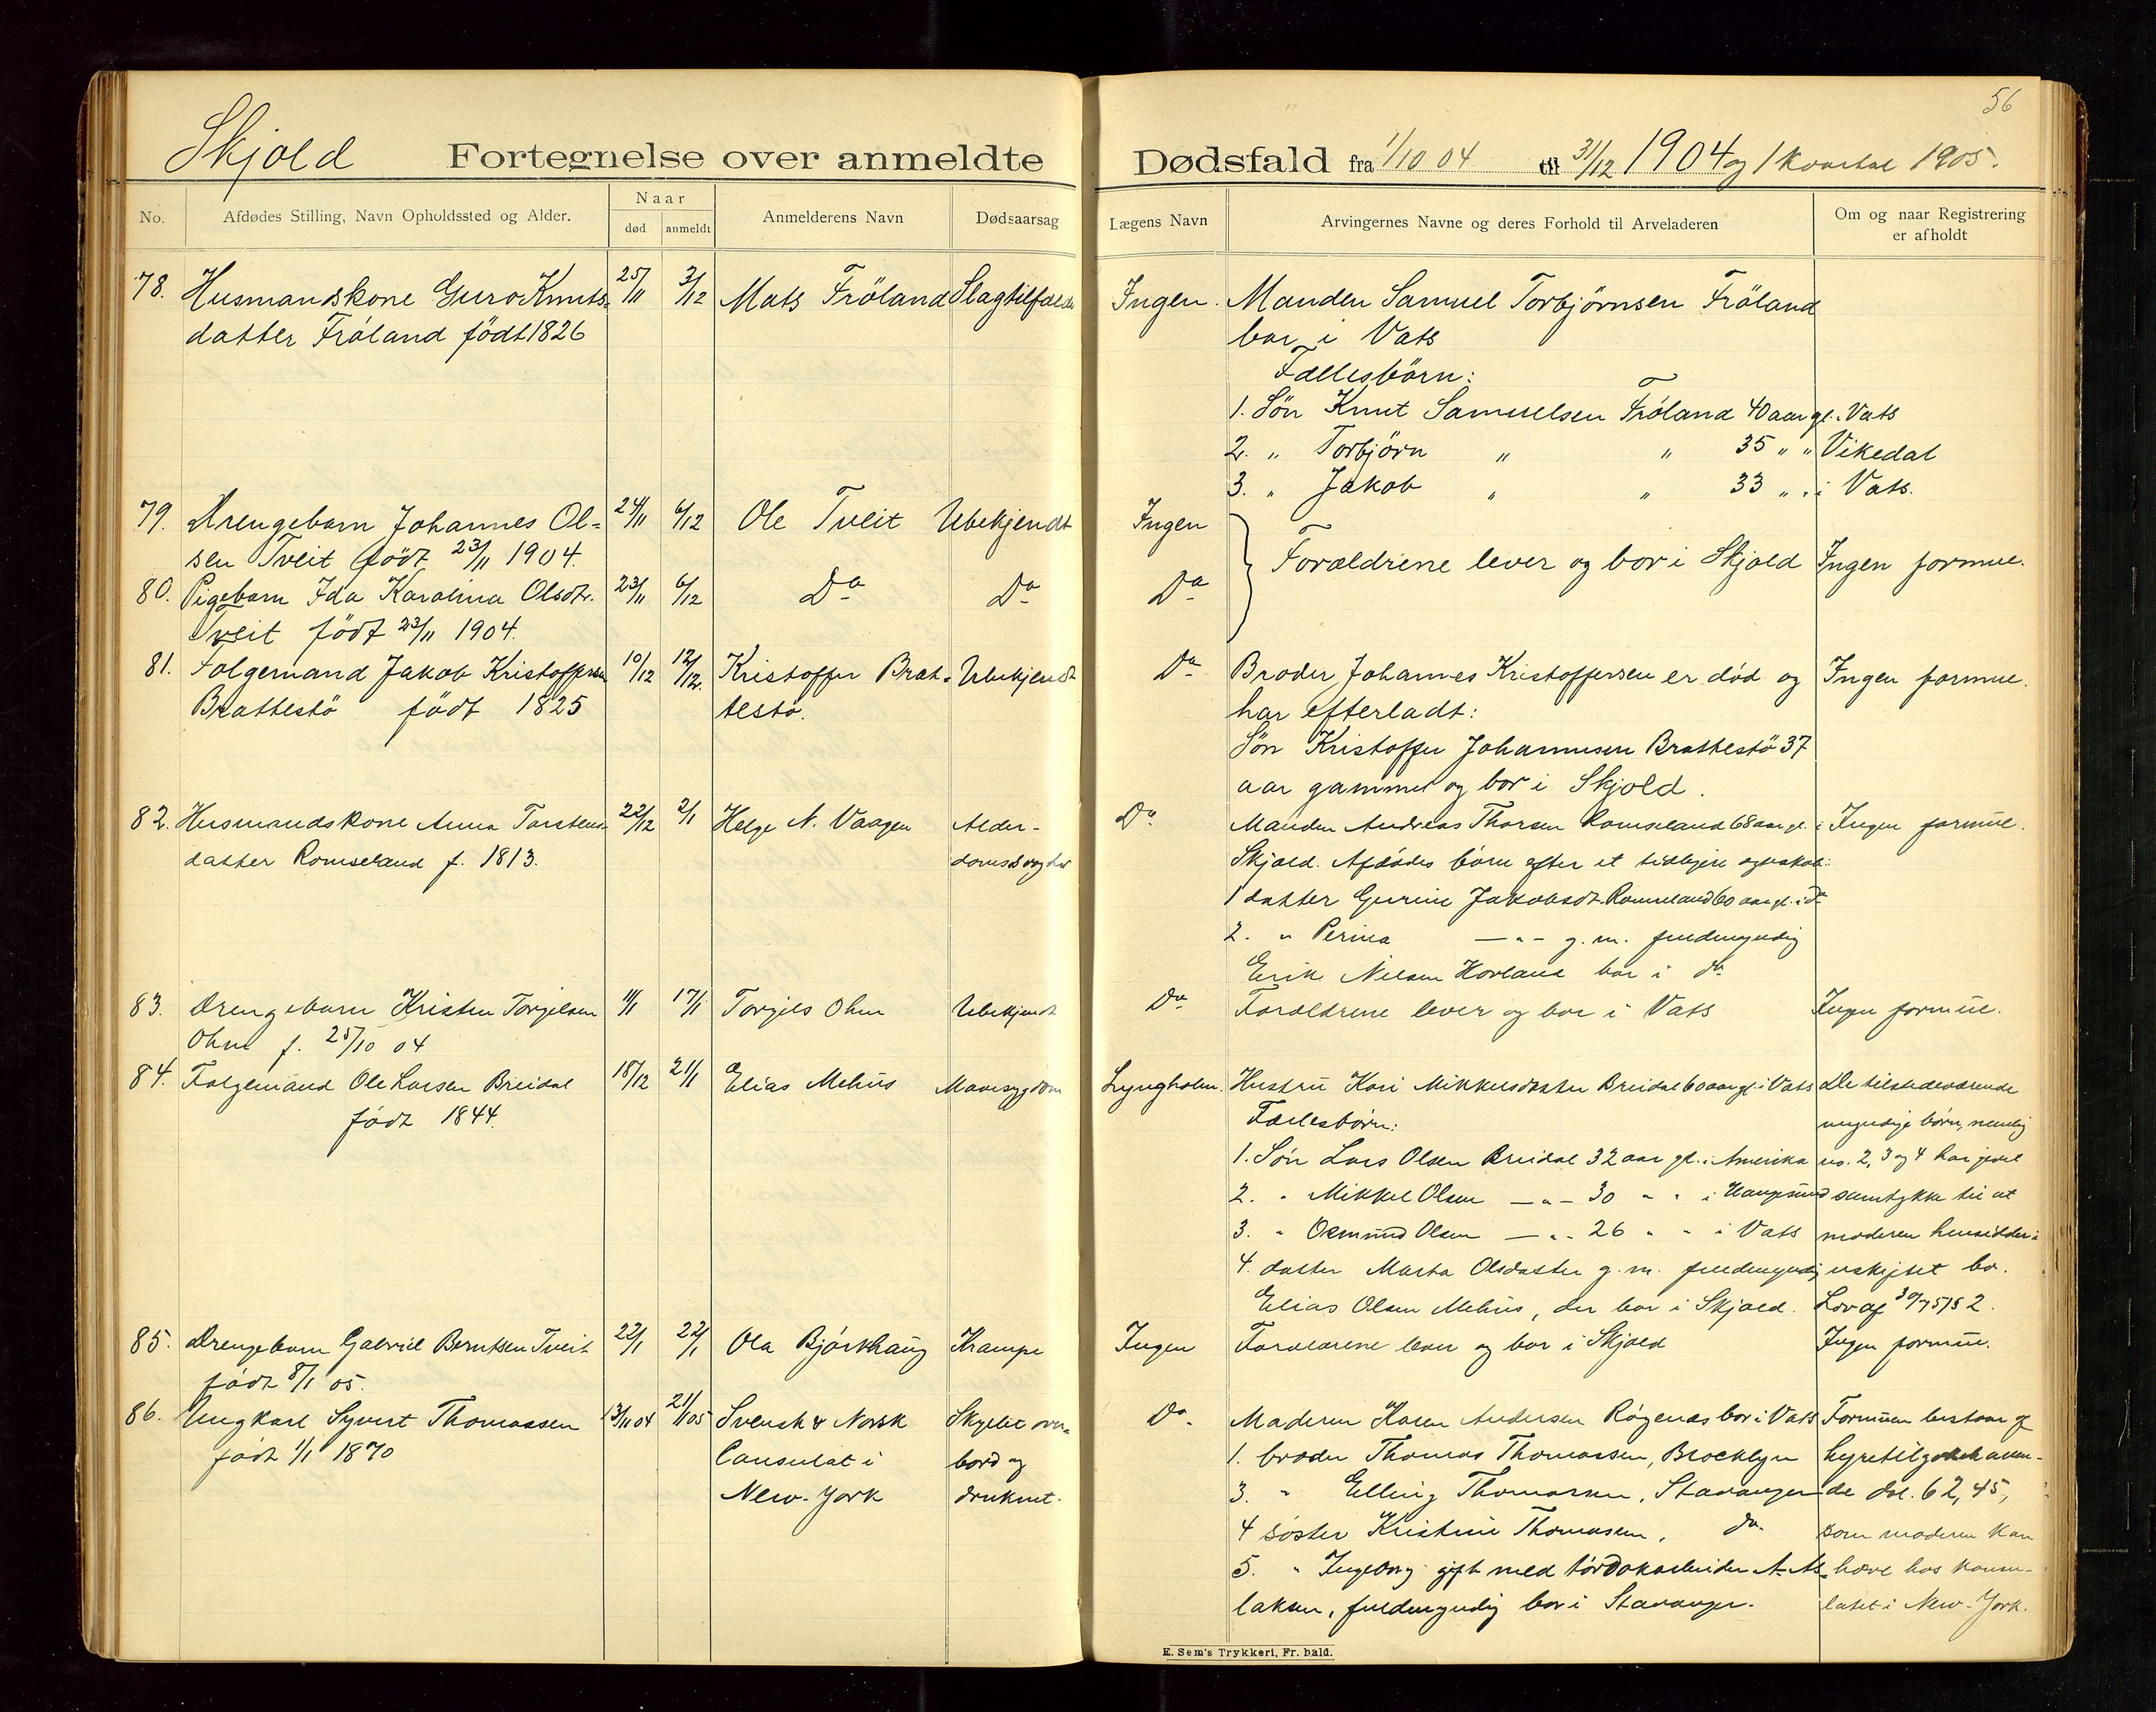 56
Skjold Fortegnelse over anmeldte Dødsfald fra 1/10 04 til 31/12 1904 og 1 kvartal 1905.
No. Afdødes Stilling, Navn Opholdssted og Alder. Naar død anmeldt Anmelderens Navn Dødsaarsag Lægens Navn Arvingernes Navne og deres Forhold til Arveladeren Om og naar Registrering er afholdt
78. Husmandskone Guro Knuts- 25/11 3/12 Mats Fröland Slagtilfælde Ingen. Manden Samuel Torbjørnsen Fröland
datter Fröland födt 1826 bor i Vats
Fællesbörn:
1. Sön Knut Samuelsen Fröland 40 aar gl. i Vats
2. „ Torbjörn „ „ 35 „ „ Vikedal
3. „ Jakob „ „ 33 „ „ i Vats.
79. Drengebarn Johannes Ol- 24/11 6/12 Ole Tveit Ubekjendt Ingen
sen Tveit födt 23/11 1904. Forældrene lever og bor i Skjold Ingen formue.
80. Pigebarn Ida Karolina Olsdtr. 23/11 6/12 Do Do Do
Tveit födt 23/11 1904.
81. Folgemand Jakob Kristoffersen 10/12 12/12. Kristoffer Brat- Ubekjendt Do Broder Johannes Kristoffersen er död og Ingen formue.
Brattestö födt 1825 testö. har efterladt:
Sön Kristoffer Johannesen Brattestö 37
aar gammel og bor i Skjold.
82. Husmandskone Anna Torstens- 22/12 2/1 Helge N. Vaagen Alder- Do Manden Andreas Thorsen Romseland 68 aar gl. i Ingen formue.
datter Romseland f. 1813. domssvaghed Skjold. Afdödes börn efter et tidligere ægteskab:
1 datter Gurine Jakobsdt. Romseland 60 aar gl. i do
2. „ Perina — „ — g. m. fuldmyndig
Erik Nilsen Hovland bor i do
83. Drengebarn Kristen Torgilsen 11/1 17/1 Torgils Ohm Ubekjendt Do Forældrene lever og bor i Vats Ingen formue.
Ohm f. 25/10 04
84. Folgemand Ole Larsen Breidal 18/12 21/1 Elias Mehus Mavesygdom Lyngholm. Hustru Kari Mikkelsdatter Breidal 60 aar gl. i Vats De tilstedeværende
födt 1844. Fællesbörn: myndige börn, nemlig
1. Sön Lars Olsen Breidal 32 aar gl. i Amerika no. 2, 3 og 4 har givet
2. „ Mikkel Olsen — „ — 30 „ „ i Haugesund samtykke til at
3. „ Osmund Olsen — „ — 26 „ „ i Vats moderen hensidder i
4. datter Marta Olsdatter g. m. fuldmyndig uskiftet bo.
Elias Olsen Mehus, der bor i Skjold. Lov af 30/7 51 § 2.
85. Drengebarn Gabriel Berntsen Tveit 22/1 22/1 Ola Björkhaug Krampe Ingen Forældrene lever og bor i Skjold Ingen formue.
födt 8/1 05.
86. Ungkarl Syvert Thomassen 13/11 04 21/1 05 Svensk & Norsk Skyllet over- Do Moderen Karen Andersen Rögenæs bor i Vats Formuen bestaar af
födt 1/1 1870 Consulat i bord og 1. broder Thomas Thomassen, Brocklyn hyretilgodehaven-
New-York druknet. 3. „ Elling Thomassen, Stavanger de dol. 62,45,
4 söster Kristine Thomassen, do. som moderen kan
5. „ Ingeborg gift med tørdokarbeider A. As- hæve hos konsu-
laksen, fuldmyndig bor i Stavanger. latet i New-York.
E. Sem's Trykkeri, Fr.hald.